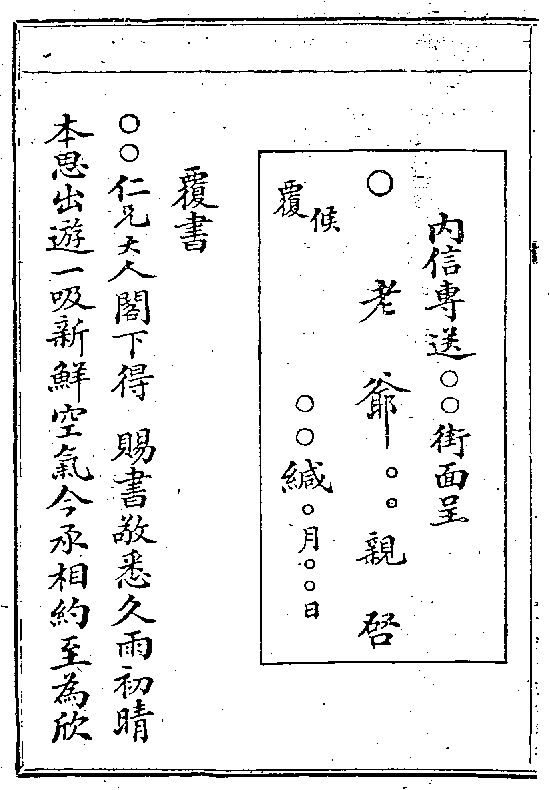 內信專送○○街面呈
○老爺○○親啓
候
覆
○○緘○月○○日
覆書
○○仁兄大人閣下得 賜書敬悉久雨初晴
本思出遊一吸新鮮空氣今承相約至為欣